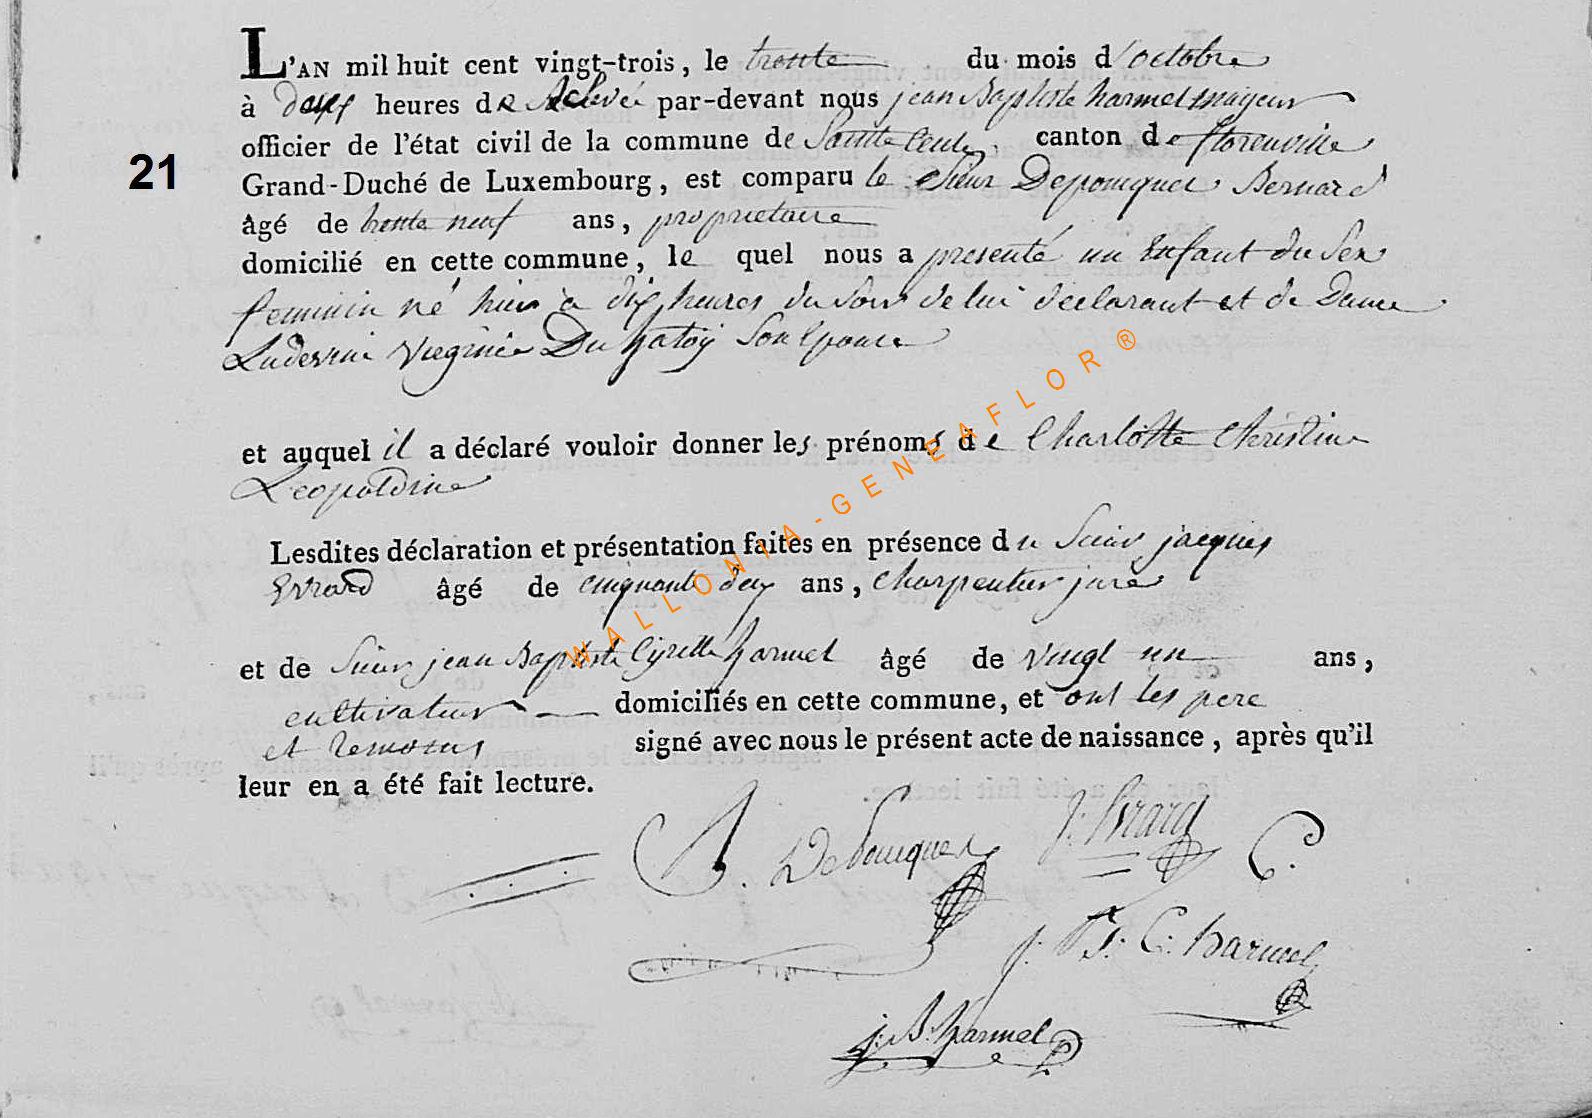 L'AN mil huit cent vingt-trois, le trente du mois d'octobre
à deux heures de Relevée par-devant nous jean Baptiste harmel mayeur
officier de l'état civil de la commune de Sainte Cecile, canton de florenville
21
Grand-Duché de Luxembourg, est comparu le Sieur Depouques Bernard
âgé de trente neuf ans, proprietaire
domicilié en cette commune, le quel nous a presenté un Enfant du Sex
feminin né hier à dix heures du Soir de lui declarant et de Dame
Virginie Du hatoy Son Epouse
et auquel il a déclaré vouloir donner les prénoms de Charlotte Christine
Leopoldine
Lesdites déclaration et présentation faites en présence du Sieur jacques
Evrard âgé de cinquante deux ans, Charpentier juré
et de Sieur jean Baptiste harmel âgé de vingt un ans,
cultivateur domiciliés en cette commune, et ont les pere
et temoins signé avec nous le présent acte de naissance, après qu'il
leur en a été fait lecture.
B. DePouques J: Evrard C.
J. B. C. harmel
j. B. harmel
WALLONIA-GENEAFLOR®